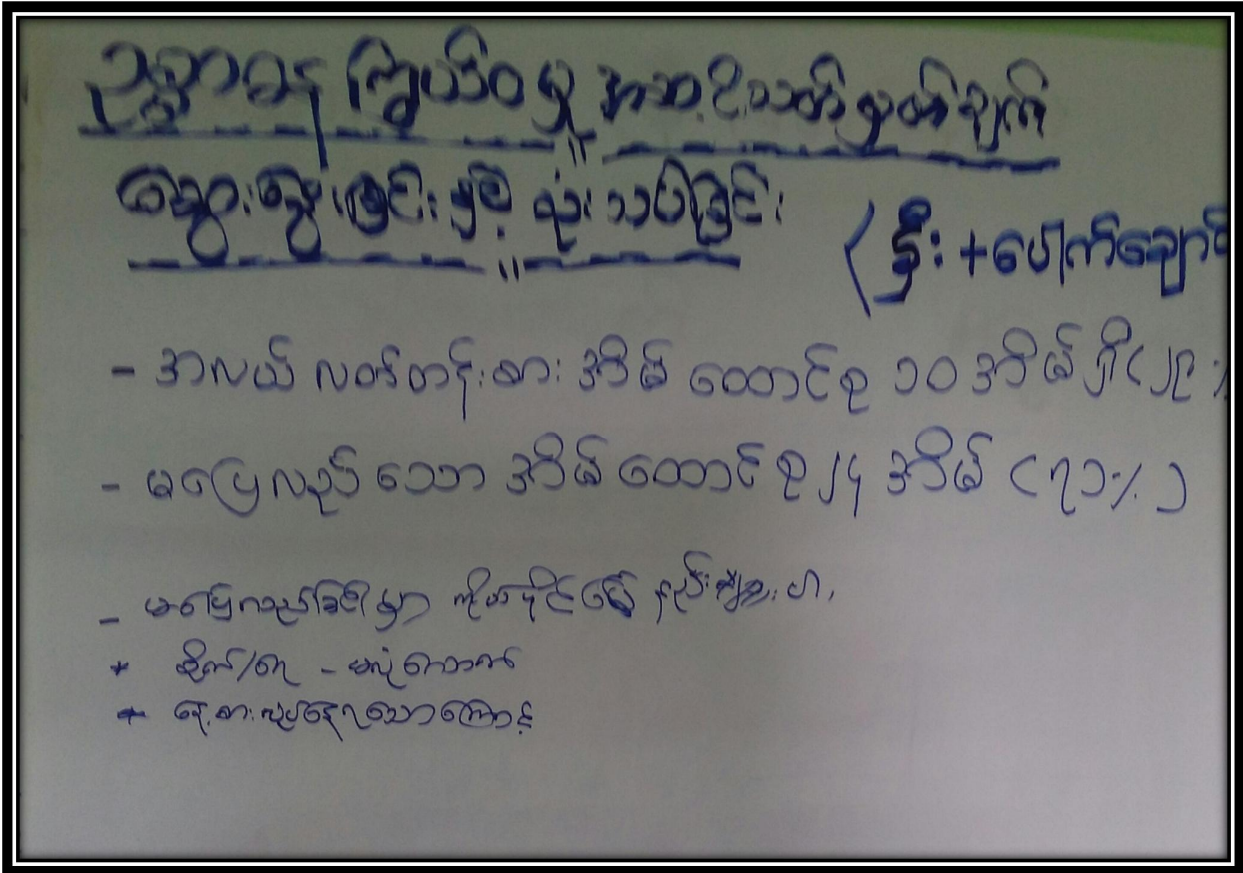 ဥစ္စာဓန ကြွယ်ဝမှု အဆင့်သတ်မှတ်ချက်
ဆွေးနွေးခြင်းနှင့် သုံးသပ်ခြင်း
(နှီး + ပေါက်ချောင်
- အလယ် လတ်တန်းစား အိမ် ထောင်စု ၁၀ အိမ် ရှိ (၂၉ %
- မပြေလည် သော အိမ် ထောင်စု ၂၄ အိမ် (၇၁% )
- မပြေလည်ခြင်းမှာ ကိုယ်ပိုင်မြေ နည်းပါး၊
* စိုက်/တု - မလုံလောက်
* နေ့စားလုပ်နေရသောကြောင့်